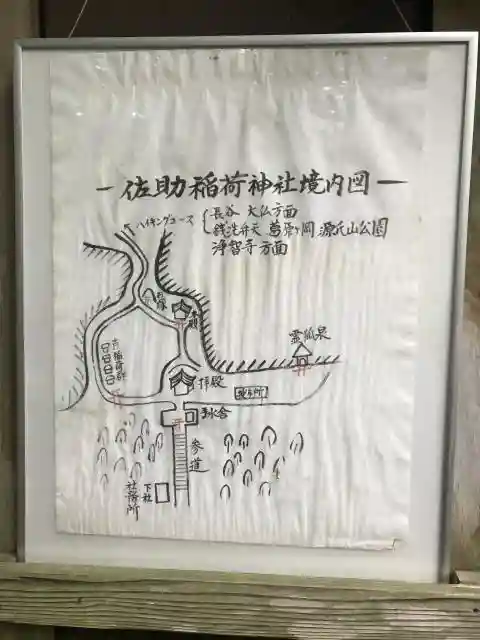 佐助稲荷神社境内図
ハイキングコース
長谷 大仏方面
銭洗弁天 葛原ヶ岡 源氏山公園
浄智寺方面
本殿
霊狐泉
古稲荷群
拝殿
手水舎
参道
下社
社務所